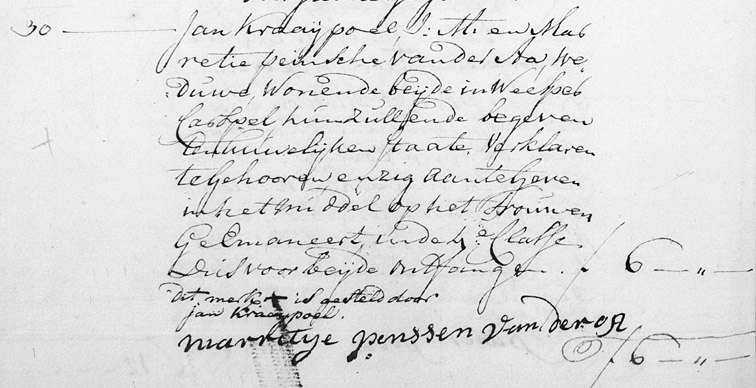 30 — Jan Kraaypoel J: M: en Mar
retie peinsche vander Aa, we
Duwe, Wonende beyde in Weesper
Carspel hun zullende begeven
ten huwelijken staate, Verklaren
te gehooren en zig aan te geven
in het middel op het trouwen
geEmaneert, in de 4e Classe
Dus voor beyde ontfangen . ƒ 6 — „ —
dit merk + is gesteld door
jan Kraaypoel.
marretye penssen van der aa
ƒ 6 — „ —